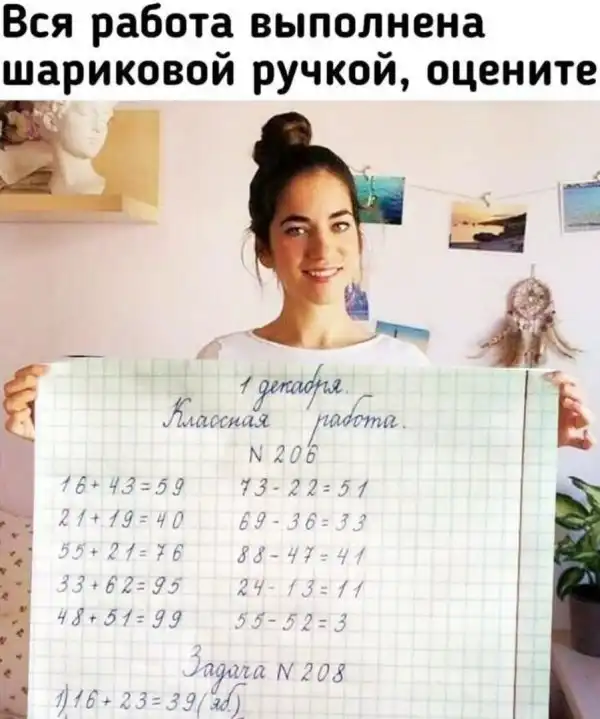 Вся работа выполнена
шариковой ручкой, оцените
1 декабря.
Классная работа.
N 206
16+43=59 73-22=51
21+19=40 69-36=33
55+21=76 88-47=41
33+62=95 24-13=11
48+51=99 55-52=3
Задача N 208
1) 16+23=39(яб)